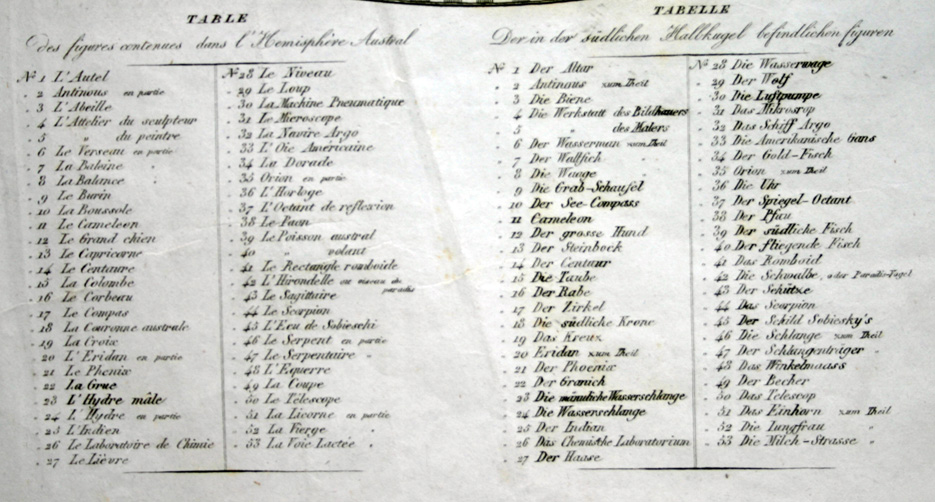 TABLE
des figures contenues dans l'Hemisphère Austral
Nº 1 L'Autel
. 2 Antinous en partie
. 3 L'Abeille
. 4 L'Attelier du sculpteur
. 5 " du peintre
. 6 Le Verseau en partie
. 7 La Baleine
. 8 La Balance
. 9 Le Burin
. 10 La Boussole
. 11 Le Cameleon
. 12 Le Grand chien
. 13 Le Capricorne
. 14 Le Centaure
. 15 La Colombe
. 16 Le Corbeau
. 17 Le Compas
. 18 La Couronne australe
. 19 La Croix
. 20 L'Eridan en partie
. 21 Le Phenix
. 22 La Grue
. 23 L'Hydre mâle
. 24 L'Hydre en partie
. 25 L'Indien
. 26 Le Laboratoire de Chimie
. 27 Le Lièvre
Nº 28 Le Niveau
. 29 Le Loup
. 30 La Machine Pneumatique
. 31 Le Microscope
. 32 La Navire Argo
. 33 L'Oie Américaine
. 34 La Dorade
. 35 Orion en partie
. 36 L'Horloge
. 37 L'Octant de reflexion
. 38 Le Paon
. 39 Le Poisson austral
. 40 " volant
. 41 Le Rectangle romboide
. 42 L'Hirondelle ou oiseau de paradis
. 43 Le Sagittaire
. 44 Le Scorpion
. 45 L'Ecu de Sobieschi
. 46 Le Serpent en partie
. 47 Le Serpentaire "
. 48 L'Equerre
. 49 La Coupe
. 50 Le Télescope
. 51 La Licorne en partie
. 52 La Vierge "
. 53 La Voie Lactée "
TABELLE
Der in der südlichen Halbkugel befindlichen figuren
Nº 1 Der Altar
. 2 Antinous zum Theil
. 3 Die Biene
. 4 Die Werkstatt des Bildhauers
5 des Malers
. 6 Der Wasserman zum Theil
. 7 Der Wallfich
. 8 Die Waage
. 9 Die Grab-Schaufel
. 10 Der See-Compass
. 11 Cameleon
. 12 Der grosse Hund
. 13 Der Steinbock
. 14 Der Centaur
. 15 Die Taube
. 16 Der Rabe
. 17 Der Zirkel
. 18 Die südliche Krone
. 19 Das Kreux
. 20 Eridan zum Theil
. 21 Der Phoenix
. 22 Der Granich
. 23 Die mänuliche Wasserschlange
. 24 Die Wasserschlange
. 25 Der Indian
. 26 Das Chemische Laboratorium
. 27 Der Haase
Nº 28 Die Wasserwage
. 29 Der Wolf
. 30 Die Luftpumpe
. 31 Das Mikroscop
. 32 Das Schiff Argo
. 33 Die Amerikanische Gans
. 34 Der Gold-Fisch
. 35 Orion zum Theil
. 36 Die Uhr
. 37 Der Spiegel-Octant
. 38 Der Pfau
. 39 Der südliche Fisch
. 40 Der fliegende Fisch
. 41 Das Romboid
. 42 Die Schwalbe, oder Paradis-Vogel
. 43 Der Schütze
. 44 Das Scorpion
. 45 Der Schild Sobiesky's
. 46 Die Schlange zum Theil
. 47 Der Schlangenträger "
. 48 Das Winkelmaass
. 49 Der Becher
. 50 Das Telescop
. 51 Das Einhorn zum Theil
. 52 Die Iungfrau "
. 53 Die Milch-Strasse "